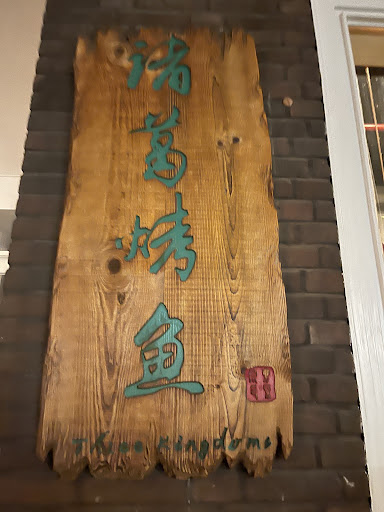 诸葛烤鱼
Three Kingdoms